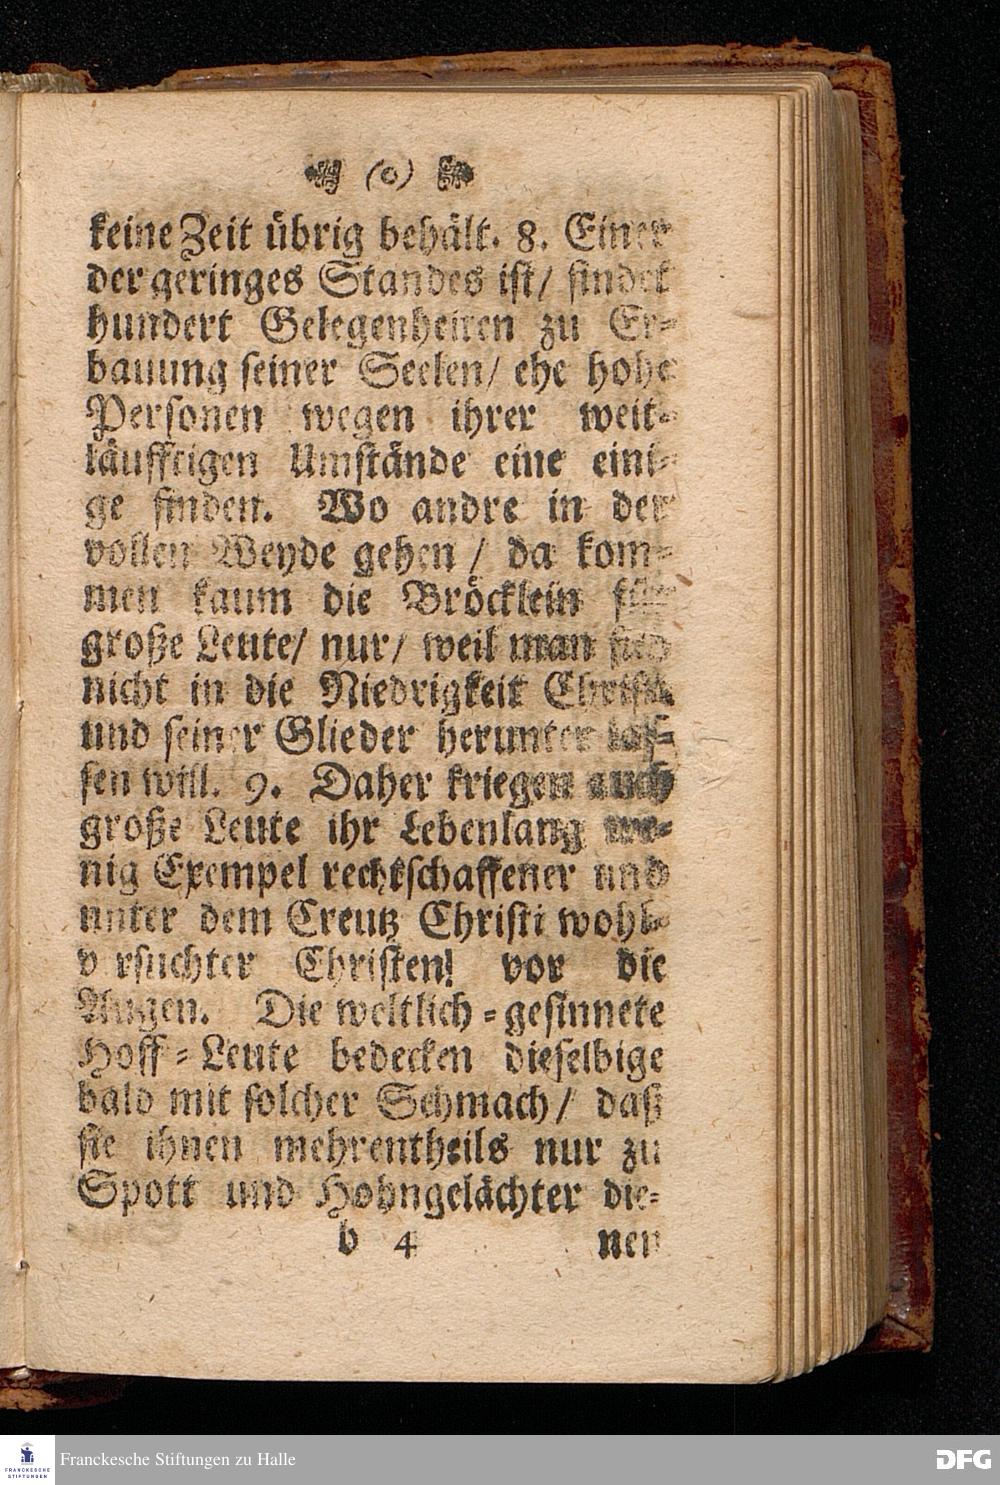 (o)
keine Zeit übrig behält. 8. Einer
der geringes Standes ist/ findet
hundert Gelegenheiten zu Er-
bauung seiner Seelen/ ehe hohe
Personen wegen ihrer weit-
läufftigen Umstände eine eini-
ge finden. Wo andre in der
vollen Weyde gehen / da kom-
men kaum die Bröcklein für
große Leute/ nur/ weil man sich
nicht in die Niedrigkeit Christi
und seiner Glieder herunter las-
sen will. 9. Daher kriegen auch
große Leute ihr Lebenlang we-
nig Exempel rechtschaffener und
unter dem Creutz Christi wohl-
versuchter Christen! vor die
Augen. Die weltlich-gesinnete
Hoff-Leute bedecken dieselbige
bald mit solcher Schmach/ daß
sie ihnen mehrentheils nur zu
Spott und Hohngelächter die-
b 4 nen
FRANCKESCHE STIFTUNGEN
Franckesche Stiftungen zu Halle
DFG